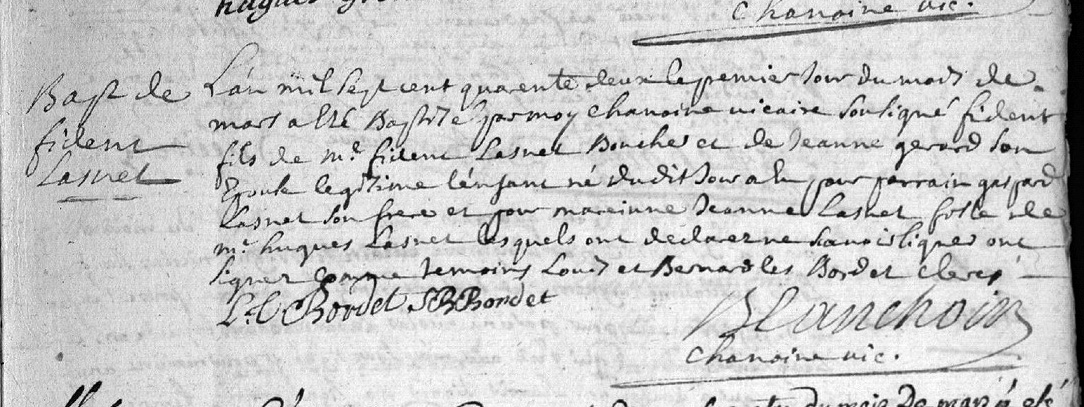 hugues
chanoine vic.
Bapt de
fident
Lasnet
L'an mil sept cent quarente deux le premier jour du mois de
mars a esté Baptisé par moy chanoine vicaire soussigné fident
fils de mr. fident Lasnet Boucher et de Jeanne gerard son
Epouse legitime l'enfant né dudit jour a eu pour parrain gaspard
Lasnet son frere et pour mareinne Jeanne Lasnet fille de
mr. hugues Lasnet lesquels ont declarer ne scavoir signer ont
signer comme temoins Louis et Bernard les Bordet clercs
L. C Bordet J B Bordet
Blanchoin
chanoine vic.
du mois De mars a esté